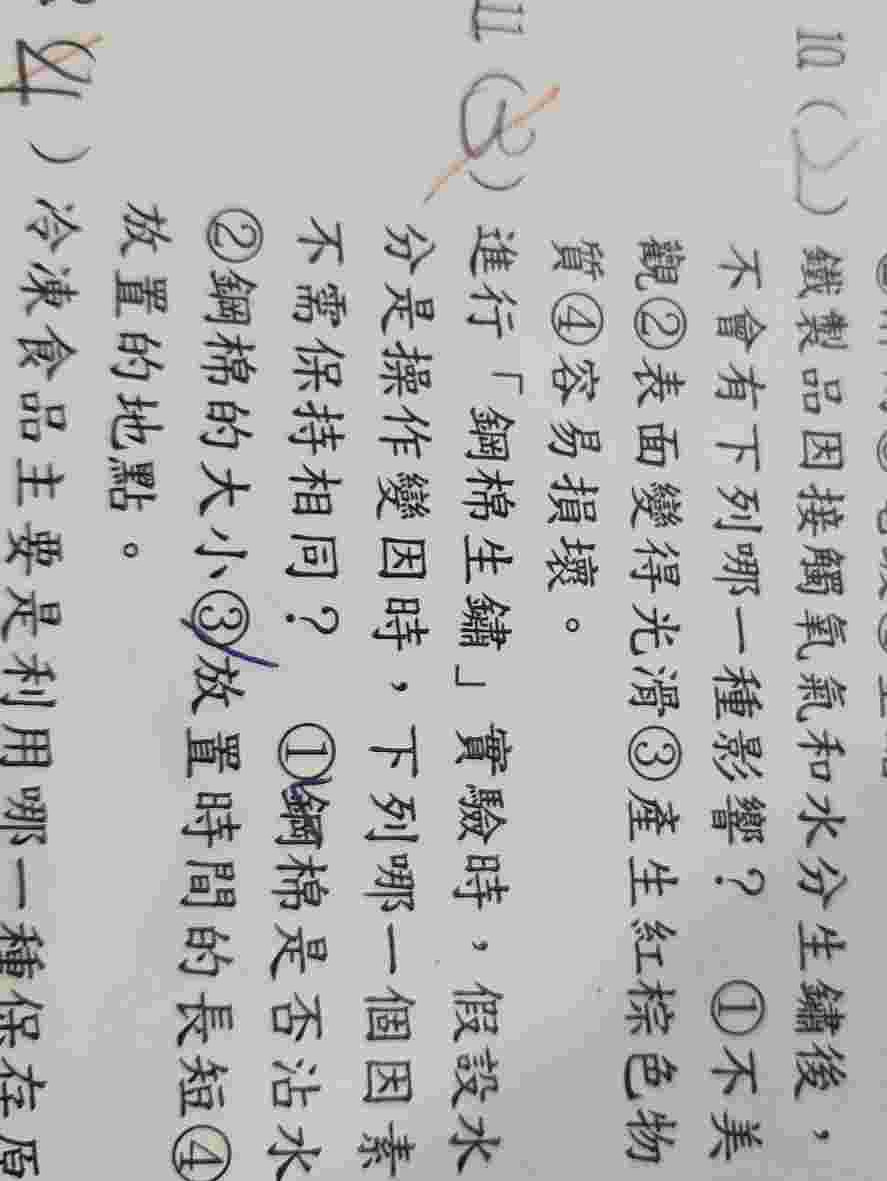 10（2）鐵製品因接觸氧氣和水分生鏽後，
不會有下列哪一種影響？　①不美
觀②表面變得光滑③產生紅棕色物
質④容易損壞。
11（3）進行「鋼棉生鏽」實驗時，假設水
分是操作變因時，下列哪一個因素
不需保持相同？　①鋼棉是否沾水
②鋼棉的大小③放置時間的長短④
放置的地點。
4）冷凍食品主要是利用哪一種保存原